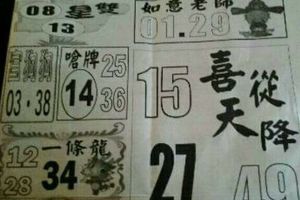 08
13
星雙
如意老師
01.29
03.38
嗆牌
14
25
36
15
喜從天降
12
28
一條龍
34
27
49